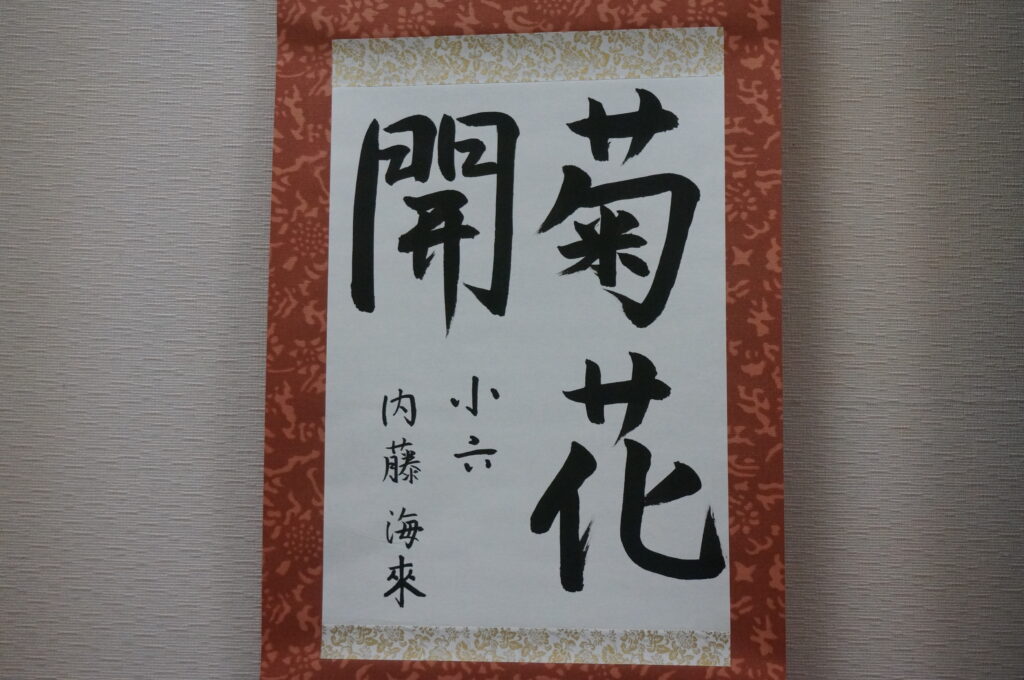 菊花
開
小六
内藤海來